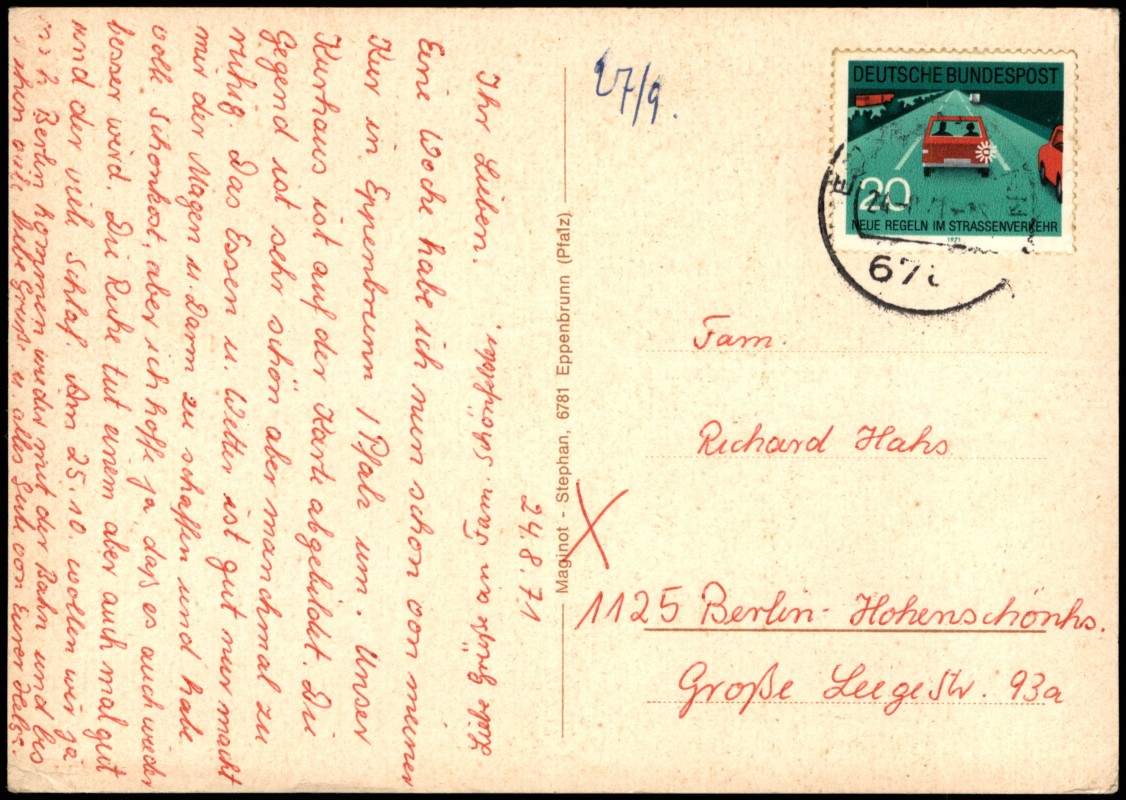 24.8.71
Ihr Lieben.
Eine Woche habe ich nun schon von meiner
Kur in Eppenbrunn / Pfalz um. Unser
Kurhaus ist auf der Karte abgebildet. Die
Gegend ist sehr schön aber manchmal zu
ruhig. Das Essen u. Wetter ist gut nur macht
mir der Magen u. Darm zu schaffen und habe
volle Schonkost, aber ich hoffe ja daß es auch wieder
besser wird. Die Ruhe tut einem aber auch mal gut
und der viele Schlaf. Am 25.10. wollen wir ja
Berlin kommen wieder mit der Bahn und bis
dahin viele liebe Grüße u. alles Gute von Eurer
Liebe Grüße an Fam.
Maginot - Stephan, 6781 Eppenbrunn (Pfalz)
27/9.
DEUTSCHE BUNDESPOST
20
NEUE REGELN IM STRASSENVERKEHR
1971
24
678
Fam.
Richard Hahs
1125 Berlin-Hohenschönhs.
Große Leegestr. 93a